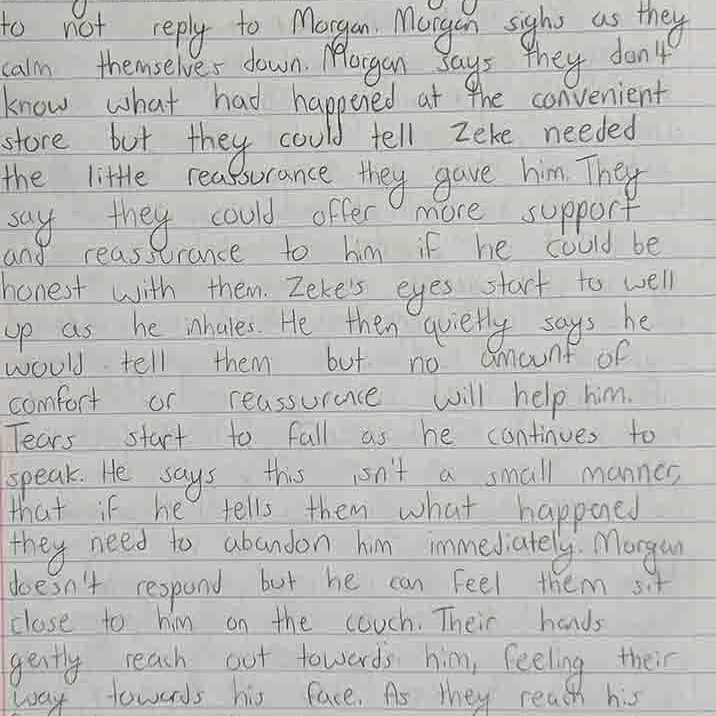 to not reply to Morgan. Morgan sighs as they
calm themselves down. Morgan says they don't
know what had happened at the convenient
store but they could tell Zeke needed
the little reassurance they gave him. They
say they could offer more support
and reassurance to him if he could be
honest with them. Zeke's eyes start to well
up as he inhales. He then quietly says he
would tell them but no amount of
comfort or reassurance will help him.
Tears start to fall as he continues to
speak. He says this isn't a small manner,
that if he tells them what happened
they need to abandon him immediately. Morgan
doesn't respond but he can feel them sit
close to him on the couch. Their hands
gently reach out towards him, feeling their
way towards his face. As they reach his